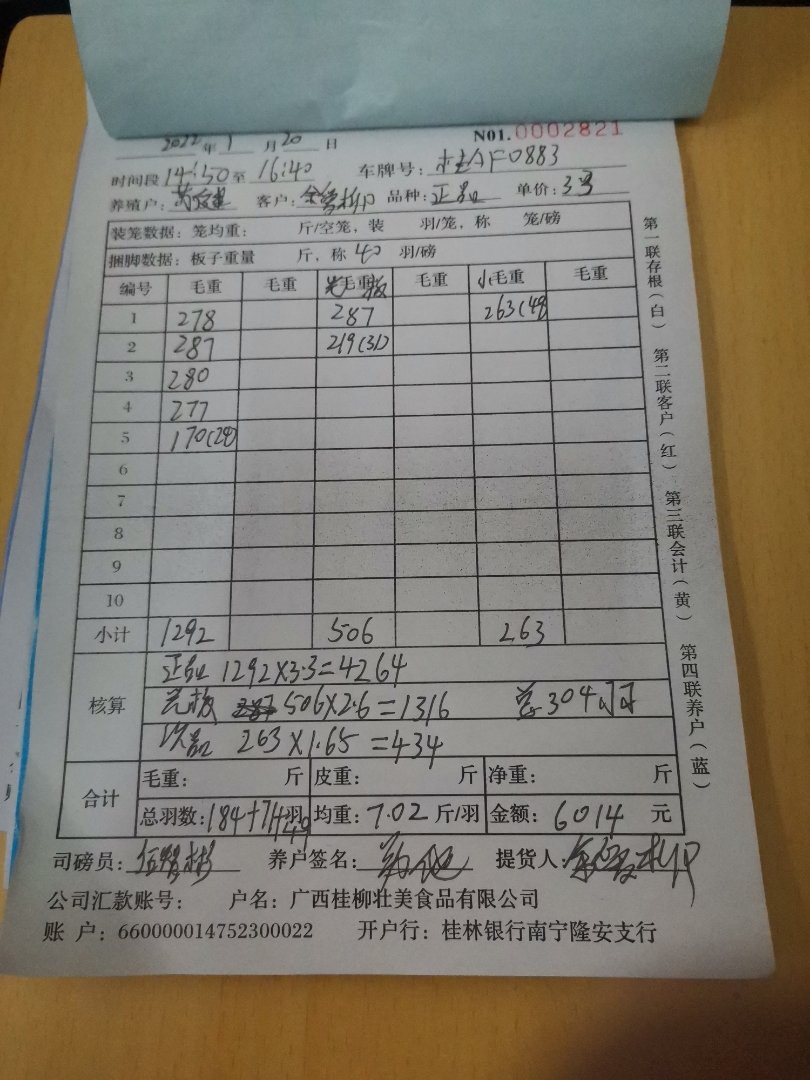 2022年1月20日 N01.0002821
时间段14:50至16:40 车牌号:桂AF0883
养殖户: 客户: 品种:正品 单价:3号
装笼数据:笼均重: 斤/空笼,装 羽/笼,称 笼/磅
捆脚数据:板子重量 斤,称40羽/磅
编号 毛重 毛重 光毛重板 毛重 小毛重 毛重
1 278 287 263(49)
2 287 219(31)
3 280
4 277
5 170(24)
6
7
8
9
10
小计 1292 506 263
核算 正品 1292×3.3=4264
光板 506×2.6=1316 总304羽
次品 263×1.65=434
合计 毛重: 斤 皮重: 斤 净重: 斤
总羽数:184+71+49羽 均重:7.02斤/羽 金额:6014元
司磅员: 养户签名: 提货人:
公司汇款账号: 户名:广西桂柳壮美食品有限公司
账 户:660000014752300022 开户行:桂林银行南宁隆安支行
第一联存根(白) 第二联客户(红) 第三联会计(黄) 第四联养户(蓝)